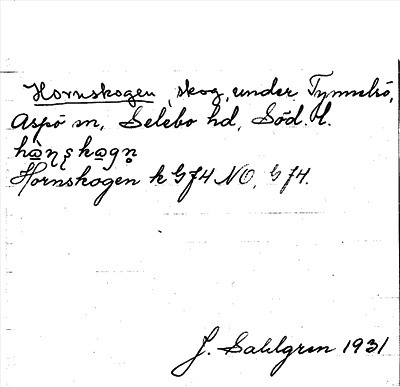 Hornskogen, skog, under Tynnelsö,
Aspö sn, Selebo hd, Söd. l.
hɷ̀ɳʂkɷgn̥
Hornskogen k Gf4 NO, G f4.
J. Sahlgren 1931